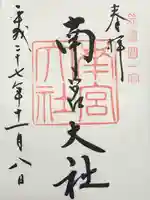 奉拝
南宮大社
南宮
大社
平成二十七年十一月八日